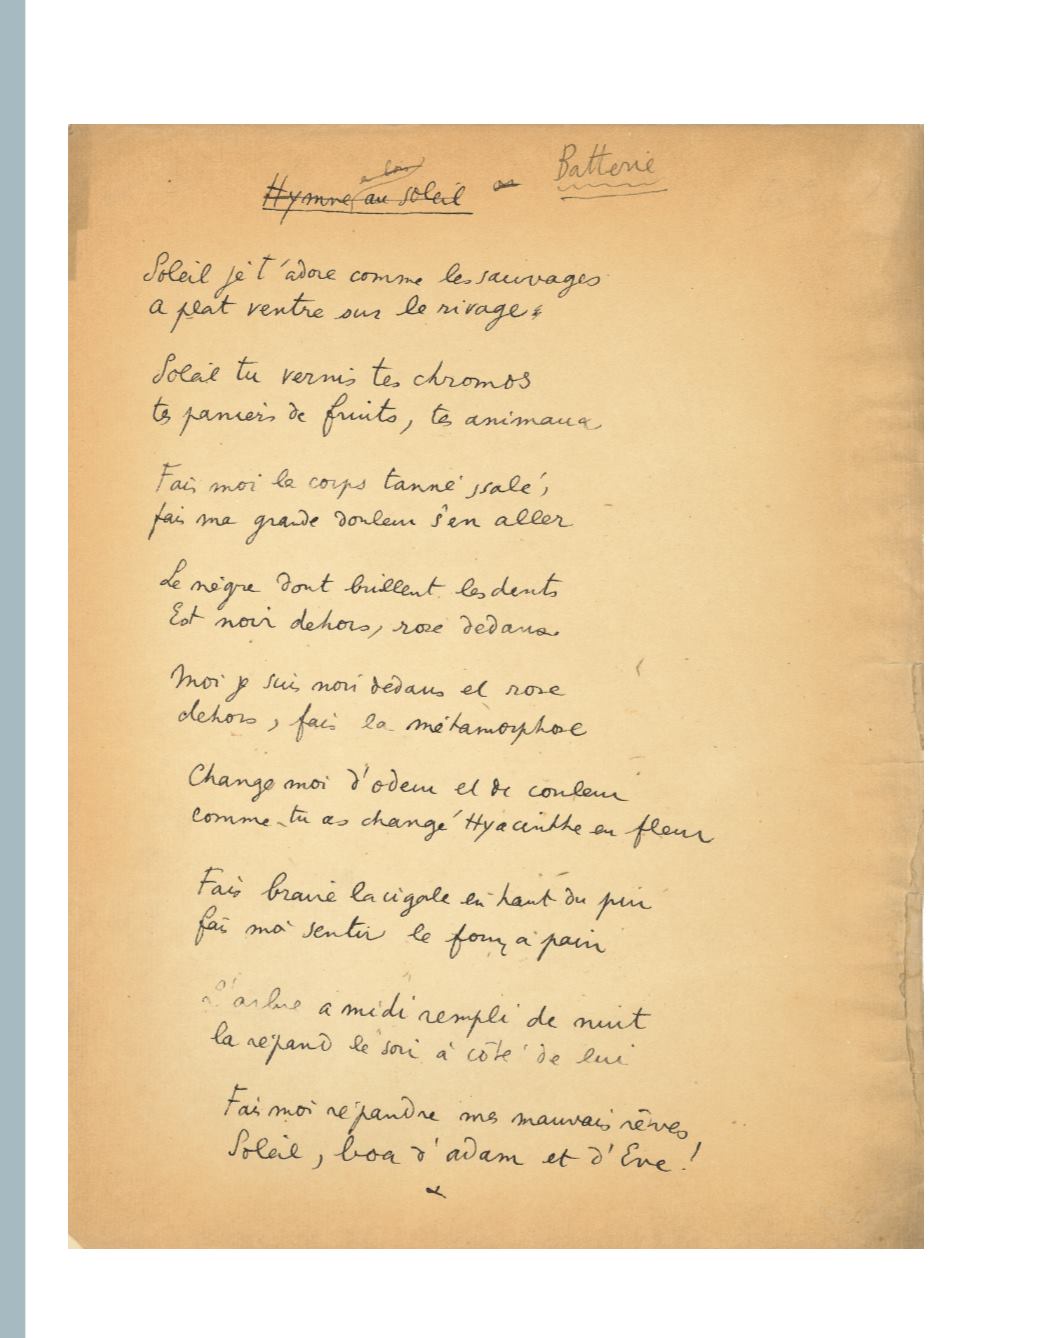 Hymne au soleil Batterie
Soleil je t'adore comme les sauvages
a plat ventre sur le rivage
Soleil tu vernis tes chromos
tes paniers de fruits, tes animaux
Fais moi le corps tanné, salé,
fais ma grande douleur s'en aller
Le nègre dont brillent les dents
Est noir dehors, rose dedans.
Moi je suis noir dedans et rose
dehors, fais la métamorphose
Change moi d'odeur et de couleur
comme tu as changé Hyacinthe en fleur
Fais braire la cigale en haut du pin
fais moi sentir le four à pain
L'arbre a midi rempli de nuit
la répand le soir à côté de lui
Fais moi répandre mes mauvais rêves
Soleil, boa d'adam et d'Eve !